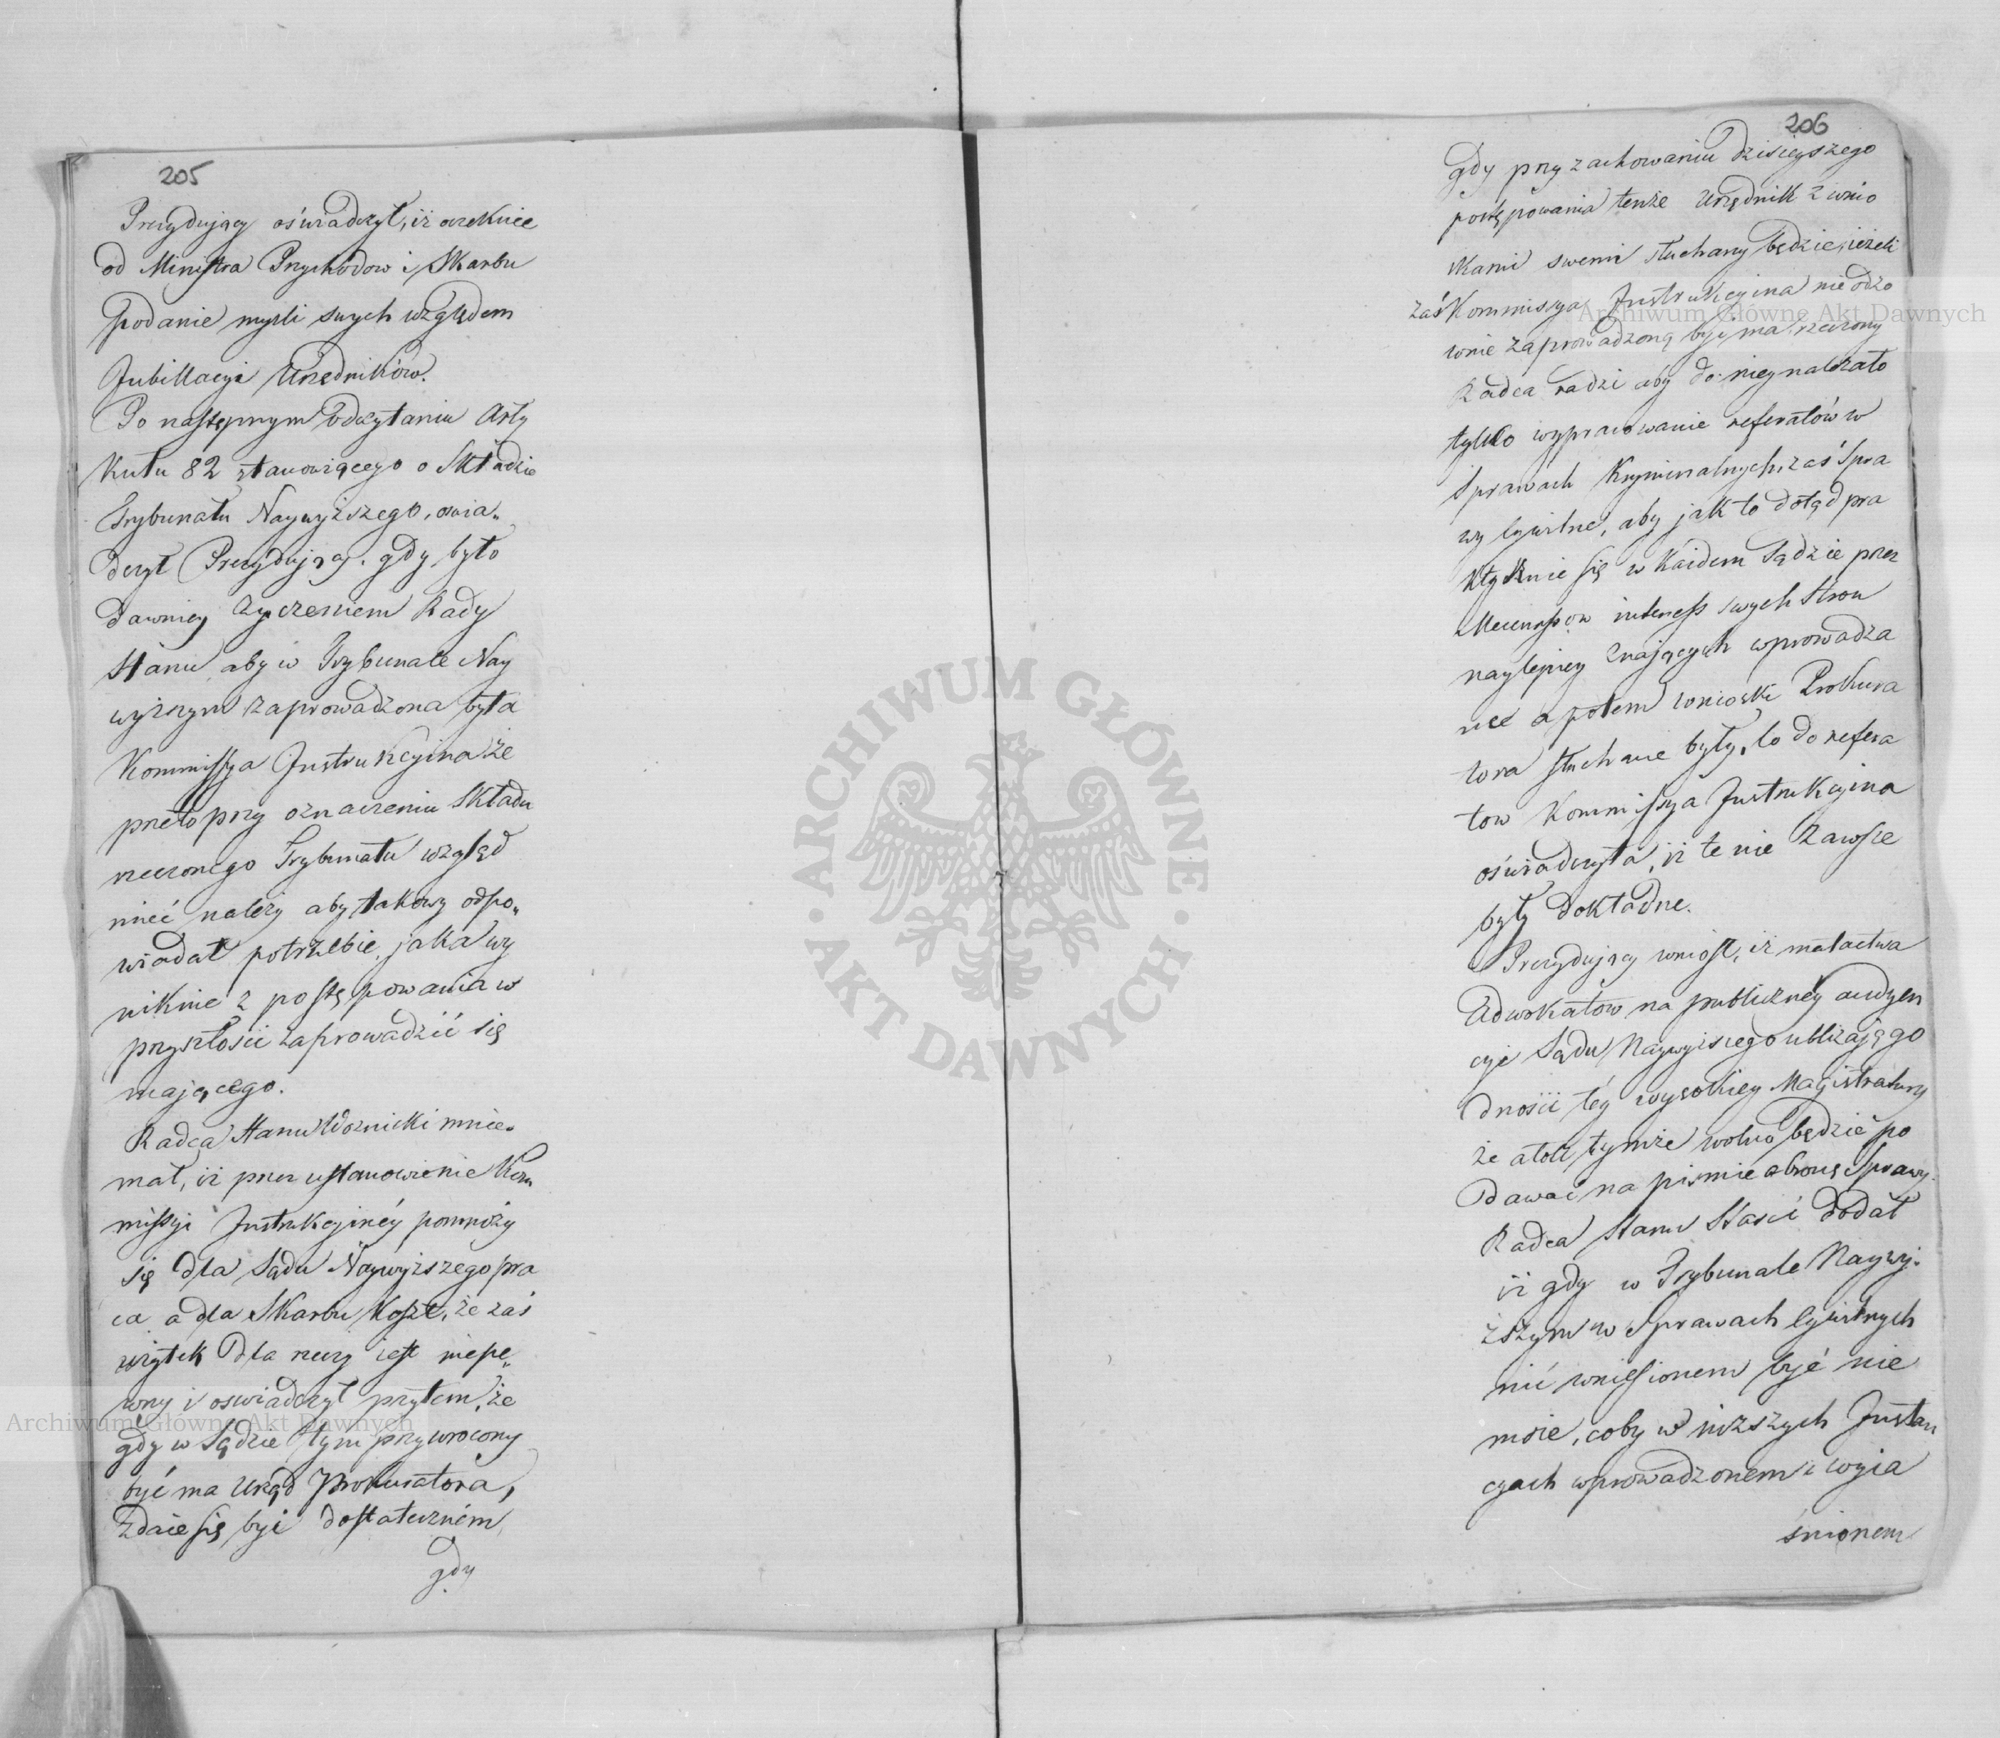 205
Prezydujący oświadczył, iż oczekuie
od Ministra Przychodow i Skarbu
podanie myśli swych względem
Jubillacyi Urzędników.
Po następnym odczytaniu Arty
kułu 82 stanowiącego o Składzie
Trybunału Naywyższego, oswia„
dczył Prezydujący, gdy było
dawniey życzeniem Rady
Stanu aby w Trybunale Nay
wyższym zaprowadzona była
Kommissya Instrukcyina że
przeto przy oznaczeniu Składu
rzeczonego Trybunału wzgląd
mieć należy aby takowy odpo„
wiadał potrzebie, jaka wy
niknie z postępowania w
przyszłości zaprowadzić się
mającego.
Radca Stanu Woznicki mnie„
mał, iż przez ustanowienie Kom
missyi Instrukcyinéy pomnoży
się dla Sądu Naywyższego pra
ca a dla Skarbu koszt, że zaś
użytek dla rzeczy iest niepe„
wny i oswiadczył przytem, że
gdy w Sądzie tym przywrocony
być ma Urząd Prokuratora,
zdaie się być dostateczném
gdy
206
gdy przy zachowaniu dzisieyszego
postępowania tenże Urzędnik z wnio
skami swemi słuchany będzie, ieżeli
zaś Kommissya Instrukcyina nieodzo
wnie zaprowadzoną być ma rzeczony
Radca radzi aby do niey należało
tylko wypracowanie referatów w
Sprawach Kryminalnych, zaś Spra
wy Cywilne, aby jak to dotąd pra
ktykuie się w każdem Sądzie przez
Mecenasow interess swych Stron
naylepiey znających wprowadza
ne a potem wnioski Prokura
tora słuchane były, co do refera
tow Kommissya Instrukcyina
oświadczyła, iż te nie zawsze
były dokładne.
Prezydujący wniosł, iż matactwa
Adwokatow na publiczney audyen
cyi Sądu Naywyższego ubliżają go
dności téy wysokiey Magistratury
że atoli tymże wolno będzie po
dawać na pismie obronę Sprawy.
Radca Stanu Stasic dodał
iż gdy w Trybunale Naywy„
ższym w Sprawach Cywilnych
nić wniesionem być nie
może, coby w niższych Instan
cyach wprowadzonem i wyia
śnionem
Archiwum Główne Akt Dawnych
Archiwum Główne Akt Dawnych
ARCHIWUM GŁÓWNE
AKT DAWNYCH